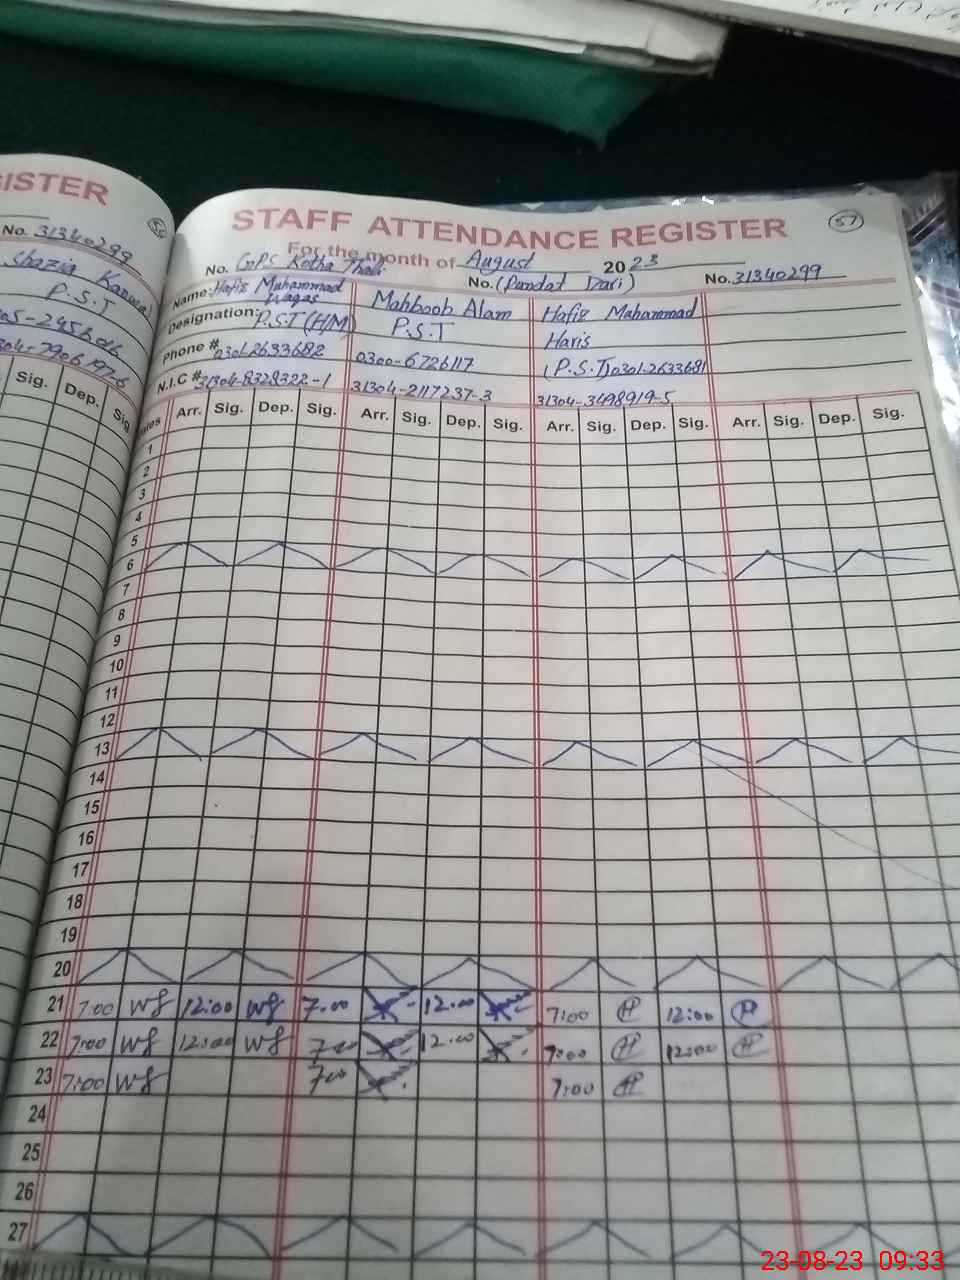 ISTER
No. 31340299
Shazia Kanwal
P.S.T
Sig. Dep. Sig.
STAFF ATTENDANCE REGISTER
57
For the month of August 2023
No. GPS Kotha Thali No. (Pundat Dari) No. 31340299
Name: Hafiz Muhammad Waqas Mahboob Alam Hafiz Muhammad
Designation: P.S.T (HM) P.S.T Haris
Phone # 0301-2633682 0300-6726117 (P.S.T) 0301-2633681
N.I.C # 31304-8329322-1 31304-2117237-3 31304-3498919-5
Arr. Sig. Dep. Sig. Arr. Sig. Dep. Sig. Arr. Sig. Dep. Sig. Arr. Sig. Dep. Sig.
1
2
3
4
5
6
7
8
9
10
11
12
13
14
15
16
17
18
19
20
21 7:00 W8 12:00 W8 7.00 12.00 7:00 H 12:00 H
22 7:00 W8 12:00 W8 7.00 12.00 7:00 H 12:00 H
23 7:00 W8 7.00 7:00 H
24
25
26
27
23-08-23 09:33